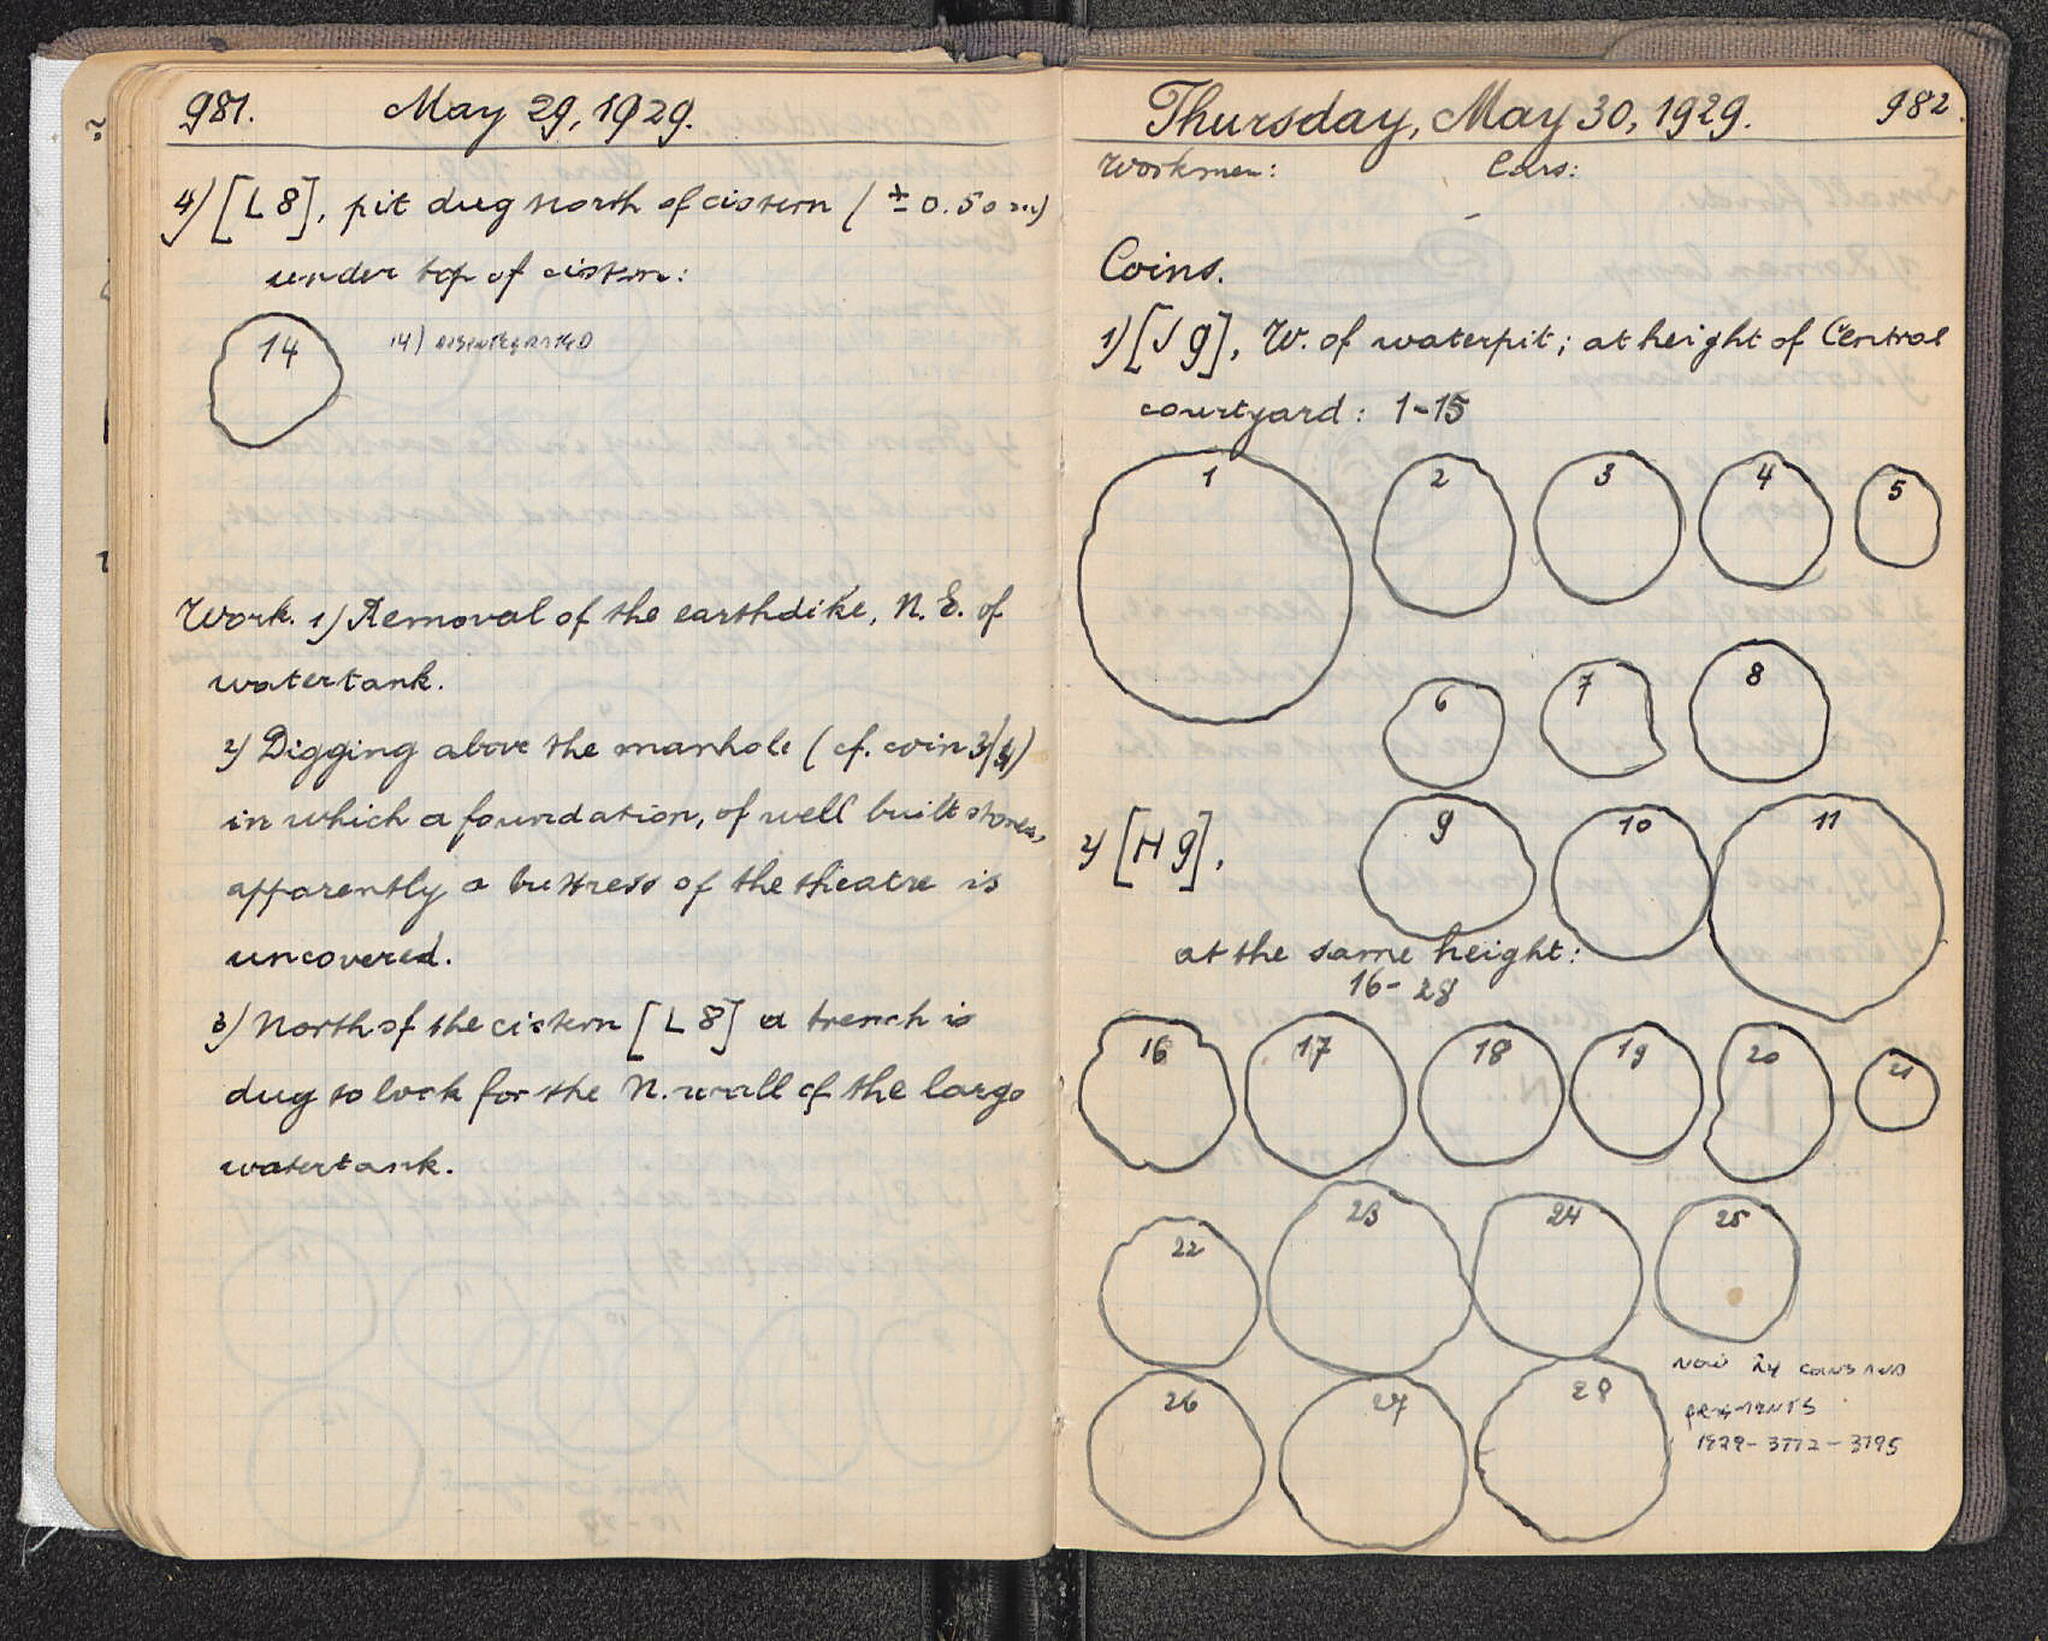 981. May 29, 1929.
4) [L 8], pit dug north of cistern (± 0.50 m)
under top of cistern:
14
14) DISINTEGRATED
Work. 1) Removal of the earthdike, N.E. of
watertank.
2) Digging above the manhole (cf. coin 3/4)
in which a foundation, of well built stones,
apparently a buttress of the theatre is
uncovered.
3) North of the cistern [L 8] a trench is
dug to look for the N. wall of the large
watertank.
Thursday, May 30, 1929. 982.
Workmen: Cars:
Coins.
1) [J 9], W. of waterpit; at height of Central
courtyard: 1-15
1 2 3 4 5
6 7 8
9 10 11
2) [H 9],
at the same height:
16-28
16 17 18 19 20 21
22 23 24 25
26 27 28
NOW 24 COINS AND
FRAGMENTS
1929-3772-3795